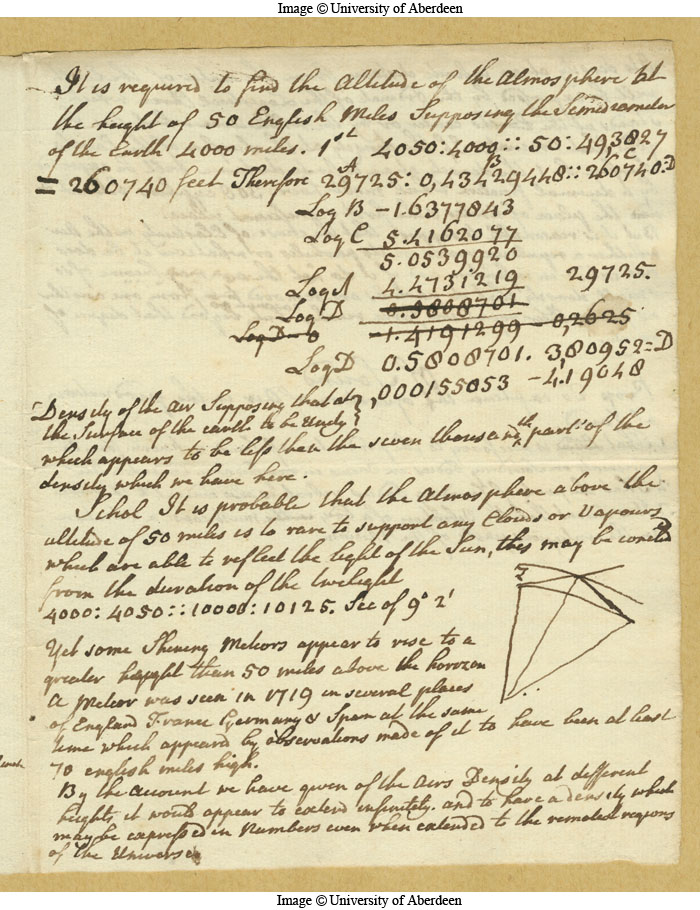 Image © University of Aberdeen
It is required to find the Altitude of the Atmosphere at
the height of 50 English Miles Supposing the Semidiameter
of the Earth 4000 miles. 1st 4050:4000::50:49,3827
= 260740 feet Therefore 29725: 0,43429448::260740:D
A B C
Log B -1.6377843
Log C 5.4162077
5.0539920
Log A 4.4731219 29725.
Log D 0.5808701
Log D - 0 -1.4191299 - 0,2625
Log D 0.5808701. 3,80952=D
,000155053 -4.19048
Density of the Air Supposing that at
the Surface of the earth to be Unity
which appears to be less than the seven thousandth part of the
density which we have here.
Schol It is probable that the Atmosphere above the
altitude of 50 miles is to rare to support any Clouds or Vapours
which are able to reflect the light of the Sun, this may be
from the duration of the twilight
4000: 4050::10000:10125. Sec of 9° 2'
Yet some Shining Meteors appear to rise to a
greater height than 50 miles above the horizon
A Meteor was seen in 1719 in several places
of England France Germany & Spain at the same
time which appeared by observations made of it to have been at least
70 english miles high.
By the account we have given of the Airs Density at different
heights it would appear to extend infinitely. and to have a density which
may be expressed in Numbers even when extended to the remotest regions
of the Universe
Image © University of Aberdeen